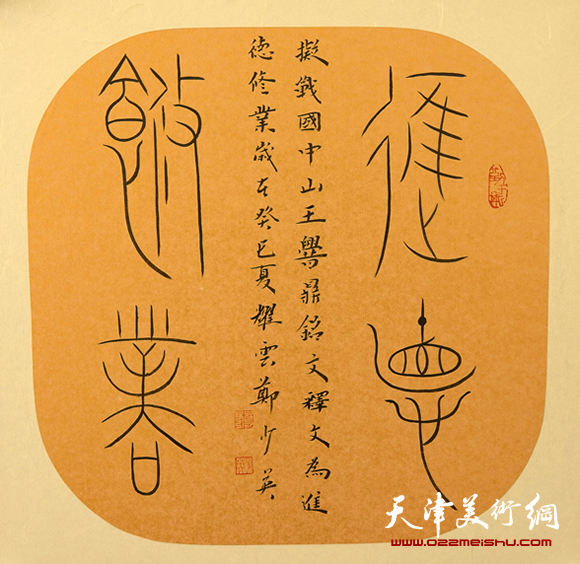 進德
修業
擬戰國中山王嚳鼎銘文釋文為進
德修業歲在癸巳夏耀雲鄭少英
天津美術網
www.022meishu.com